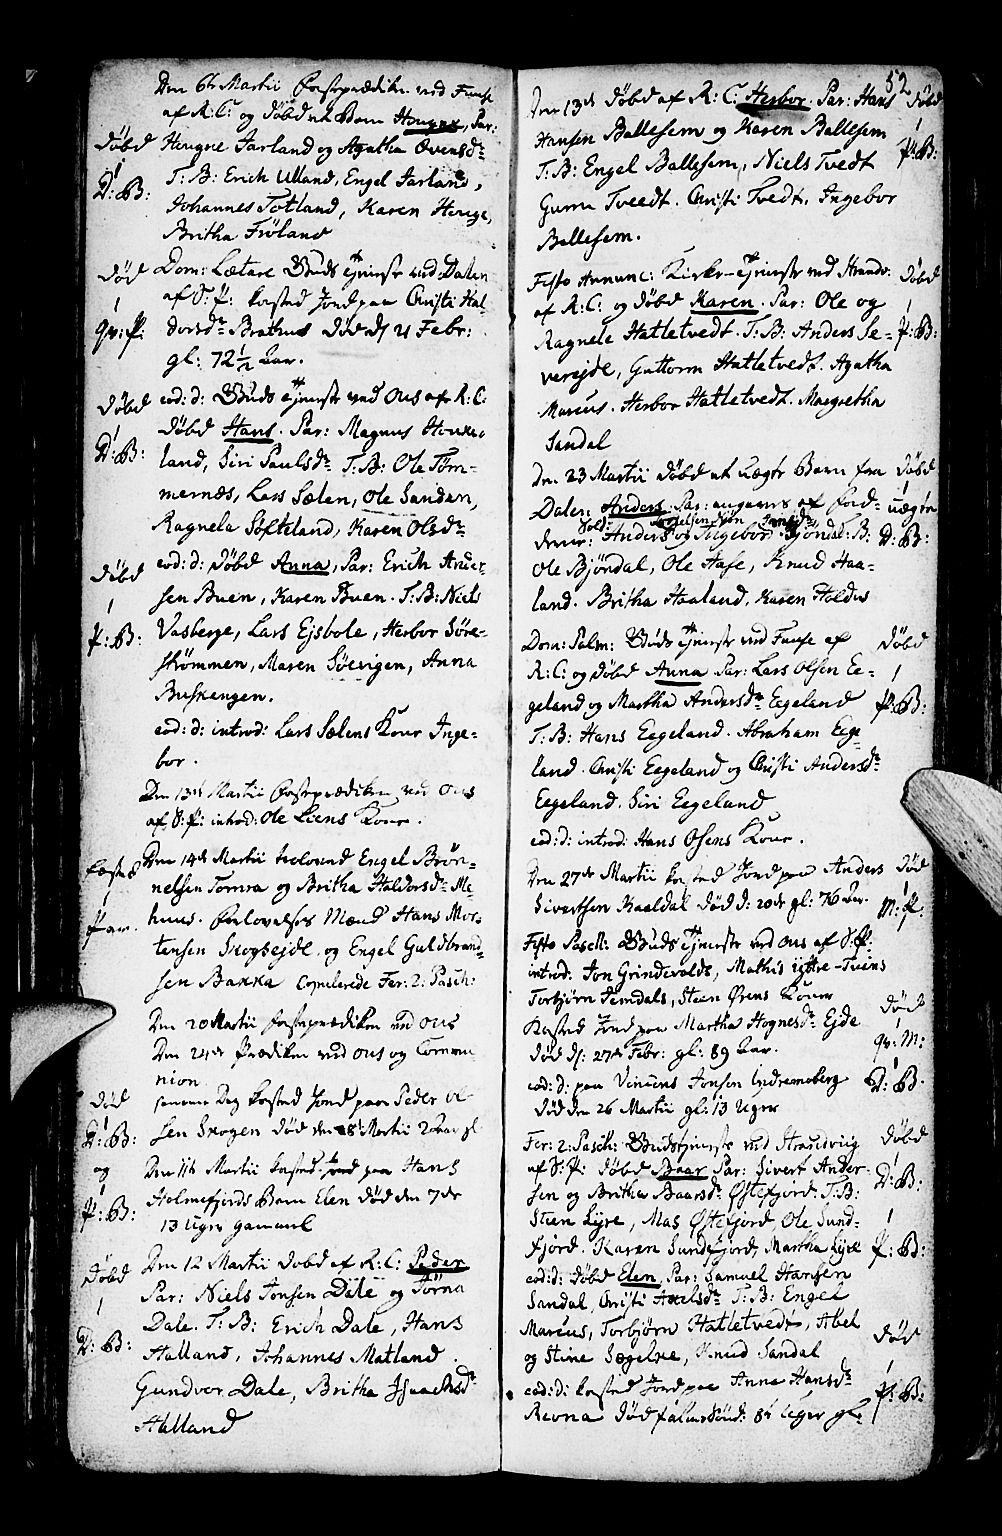 52
Den 6te Martii Fasteprædiken ved Fuuse
af R: C: og døbd et Barn Hougne, Par:
døbd
1
D: B:
Hougne Jarland og Agatha Ovensdr
T: B: Erich Ulland, Engel Jarland,
Johannes Totland, Karen Houge,
Britha Fröland
død
1
Qv: P:
Dom: Lætare Gudstjeneste ved Dalen
af S: P: kasted Jord paa Christi Hal-
dorsdr Brathus død d. 21 Febr:
gl: 72 1/2 Aar.
døbd
1
D: B:
eod: d: Gudstjeneste ved Ous af R: C:
døbd Hans. Par: Magnus Houke-
land, Siri Paulsdr T: B: Ole Töm-
mernæs, Lars Sælen, Ole Sanden,
Ragnela Söfteland, Karen Olsdr
døbd
1
P: B:
eod: d: døbd Anna, Par: Erich Ander-
sen Buen, Karen Buen. T: B: Niels
Vasberge, Lars Ejsbole, Herbor Söre-
strömmen, Maren Söevigen, Anna
Buskengen.
eod: d: introd: Lars Sælens Kone Inge-
bor.
Den 13de Martii Fasteprædiken ved Ous
af S: P: introd: Ole Liens Kone.
fæsted
1
Par.
Den 14de Martii trolovend Engel Brön-
nelsen Tomra og Britha Haldorsdr Me-
huus. Forlovelses Mænd Hans Mor-
tensen Skogsejde og Engel Guldbrand-
sen Bakka Copulerede Fer: 2: Pasch:
Den 20 Martii Fasteprædiken ved Ous
Den 24de Prædiken ved Ous og Commu-
nion
død
1
D: B:
og
1
P: B:
samme Dag kasted Jord paa Peder Ol-
sen Skogen død den 18 Martii 2 Aar gl.
Den 11te Martii kasted Jord paa Hans
Holmefjords Barn Elen død den 7de
13 Uger gammel
døbd
1
D: B:
Den 12 Martii døbd af R: C: Peder
Par: Niels Jonsen Dale og Törna
Dale. T: B: Erich Dale, Hans
Hålland, Johannes Matland.
Gundvor Dale, Britha Isaachsdr
Hålland
Den 13de døbd af R: C: Herbor. Par: Hans
døbd
1
P: B:
Hansen Ballesem og Karen Ballesem
T: B: Engel Ballesem, Niels Tvedt
Gurru Tveedt. Christi Tvedt. Ingebor
Ballesem.
Festo Annunc: Kirke-Tjeneste ved Strandv.
døbd
1
P: B:
af R: C: og døbd Karen. Par: Ole og
Ragnele Hatletvedt. T: B: Anders Se-
verejde, Guttorm Hatletvedt. Agatha
Marcus. Herbor Hatletvedt. Margretha
Sandal
Den 23 Martii døbd et uægte Barn fra
døbd
uægte
D: B:
Dalen Anders. Par: angivens af Jord-
Anders og Ingebor Bjöndal: B:
Ole Bjöndal, Ole Hase, Knud Haa-
land. Britha Haaland, Karen Holdus
Dom: Palm: Gudstjeneste ved Fuuse af
døbd
1
P: B:
R: C: og døbd Anna Par: Lars Olsen Ee-
geland og Martha Andersdr Eegeland
T: B: Hans Eegeland. Abraham Eege-
land. Christi Eegeland og Christi Andersdr
Eegeland. Siri Eegeland
eod: d: introd: Hans Osens Kone.
Den 27de Martii kasted Jord paa Anders
død
1
M: P:
Sivertsen Kaaldal død d: 20de gl: 76 Aar.
Festo Pasch: Gudstjeneste ved Ous af S: P:
introd: Jon Grindevolds, Mathis yttre-Tviens
Torbjörn Temdals, Steen Örens Koner
død
1
Qv: M:
Kasted Jord paa Martha Hognesdr Ejde
død d: 27de Febr: gl: 89 Aar.
D: B:
eod: d: paa Vincens Jonsen Indremoberg
død den 26 Martii gl: 13 Uger
Fer: 2: Pasch: Gudstjeneste ved Strandvig
døbd
1
D: B:
af S: P: døbd Baar Par: Sivert Ander-
sen og Britha Baarsdr Östefjord T: B:
Steen Lyre, Mas Östefjord, Ole Sund-
fjord. Karen Sundefjord, Martha Lyre
1
P: B:
eod: d: døbd Elen, Par: Samuel Hansen
Sandal, Christi Axelsdr T: B: Engel
Marcus, Torbjörn Hatletvedt, Abel
og Stine Sægelne, Knud Sandal
død
1
P: B:
eod: d: kasted Jord paa Anna Hansdr
Revna død Palmesönd: 8te Uger gl: